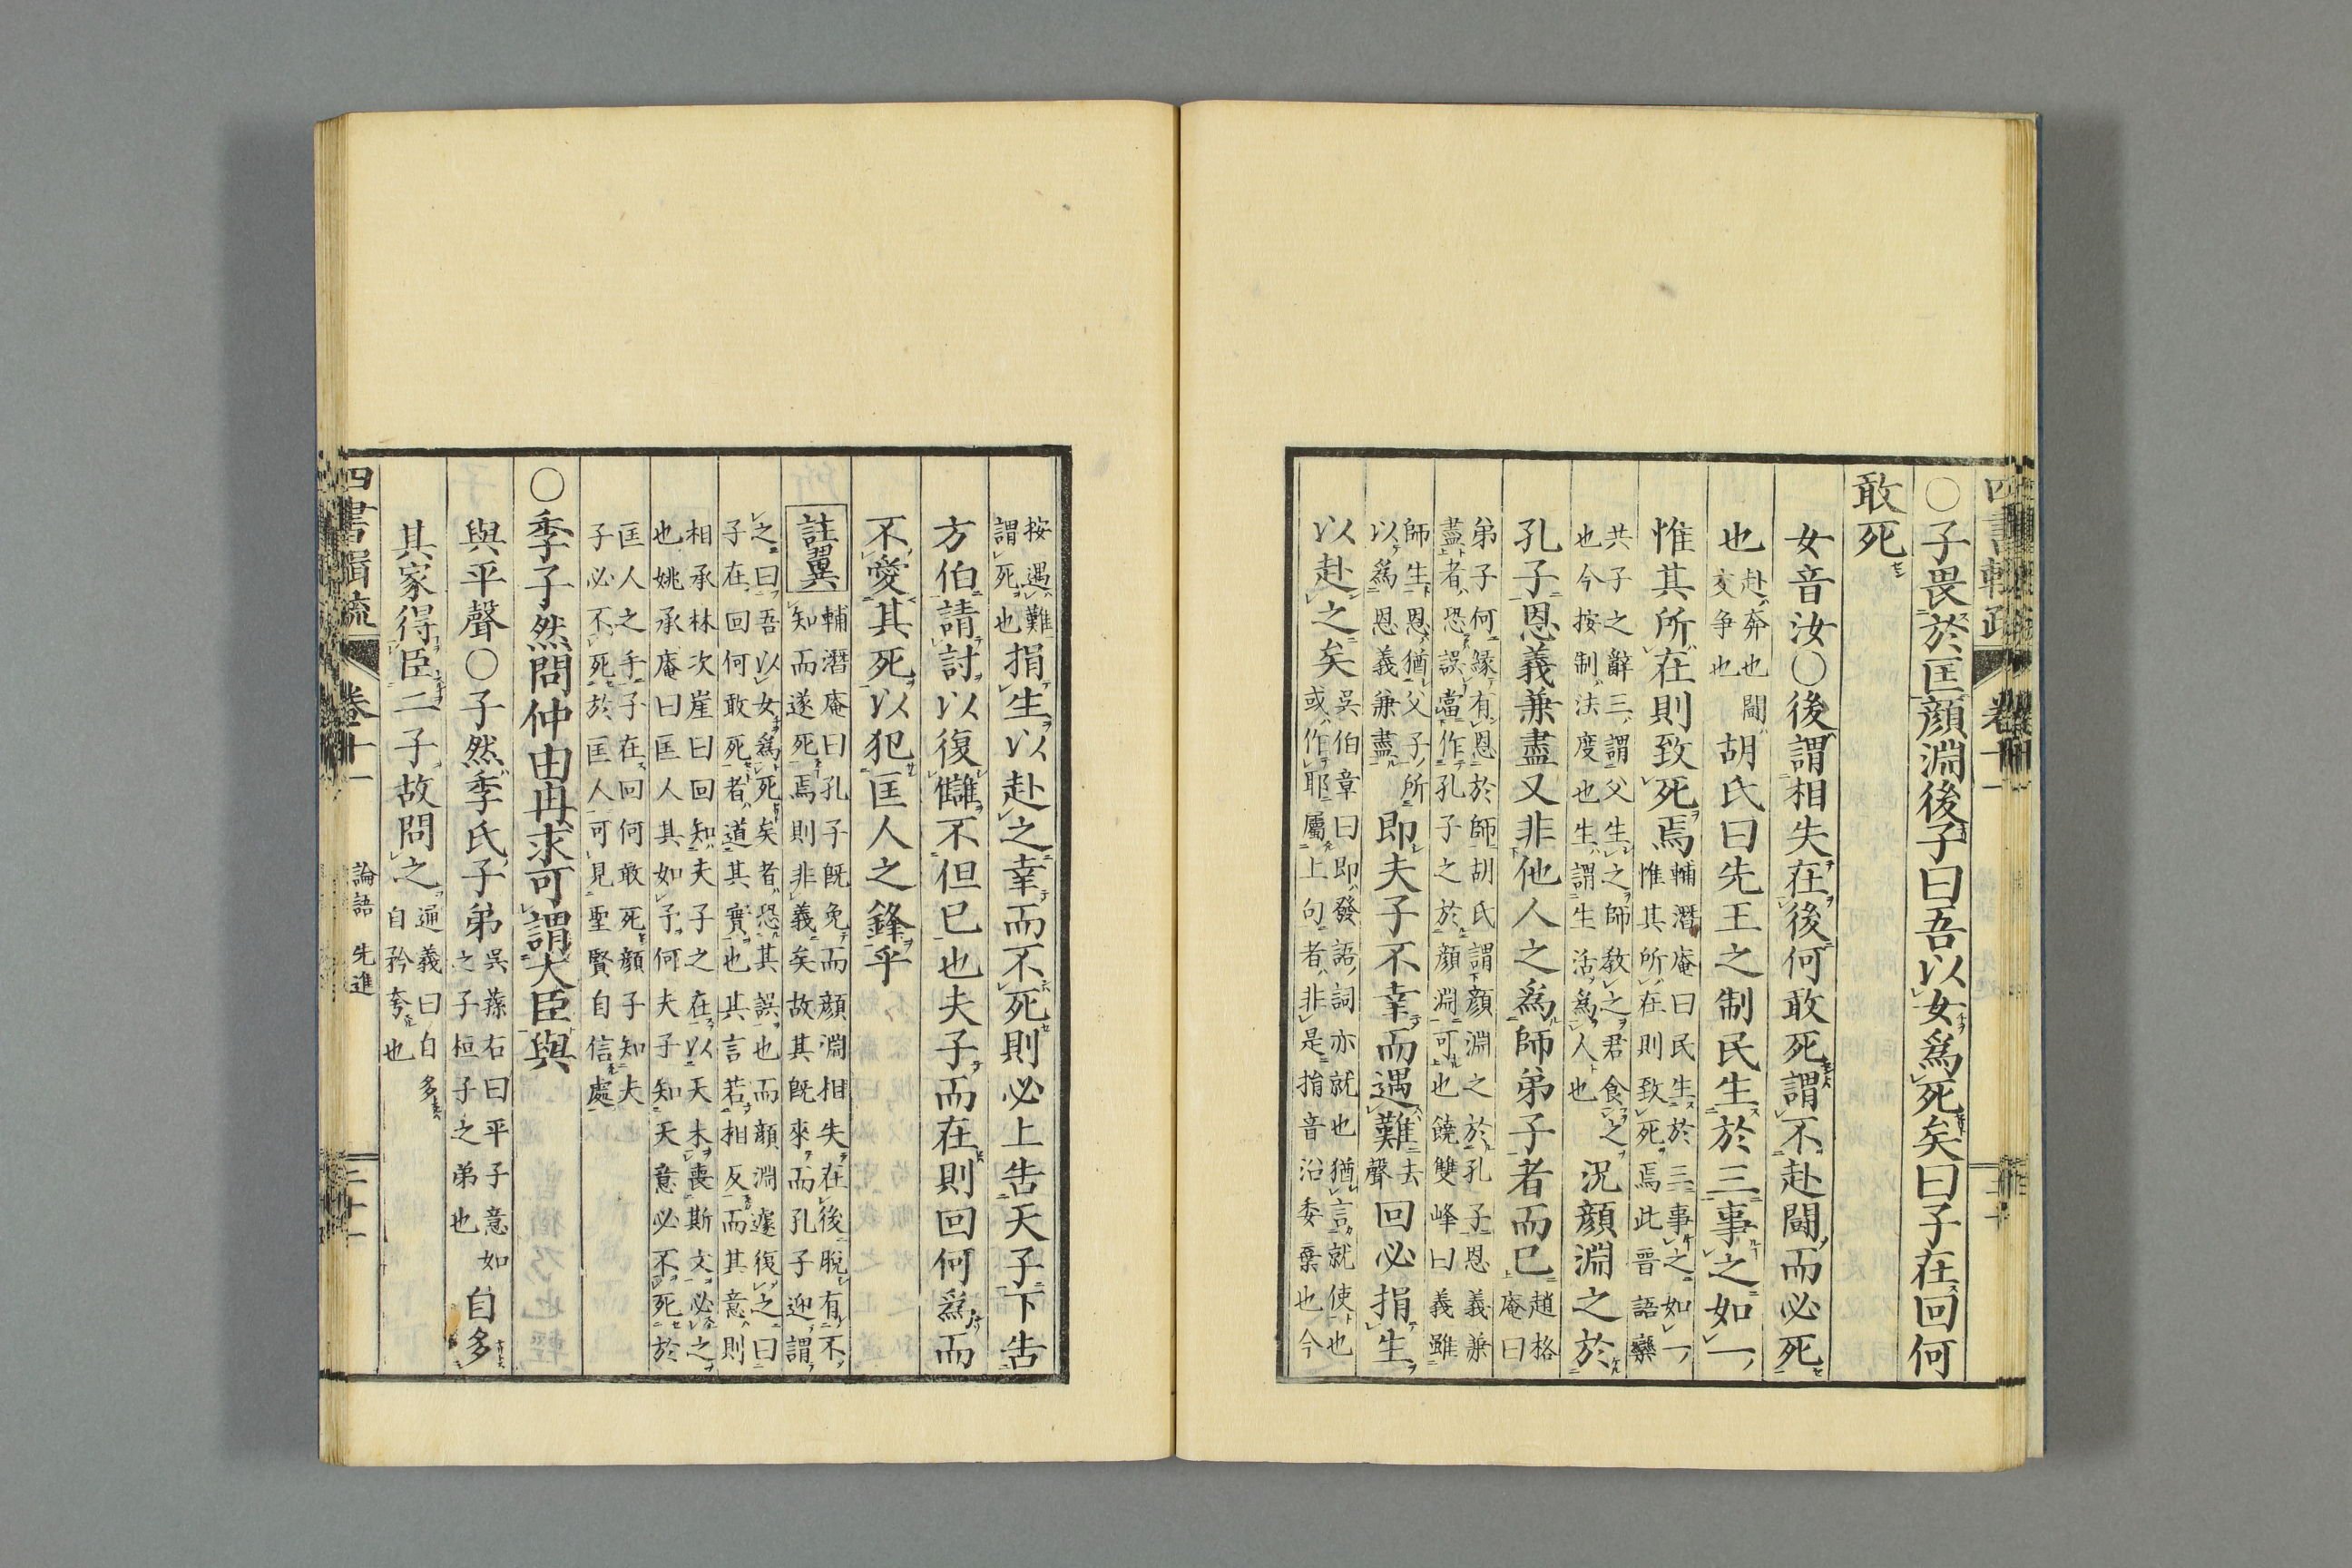 四書輯疏 卷十一
○子畏於匡顏淵後子曰吾以女爲死矣曰子在回何
敢死
女音汝○後謂相失在後何敢死謂不赴鬪而必死
也赴奔也鬪交争也胡氏曰先王之制民生於三事之如一
惟其所在則致死焉輔潛庵曰民生於三事之如一惟其所在則致死焉此晉語欒
共子之辭三謂父生之師教之君食之也今按制法度也生謂生活爲人也況顏淵之於
孔子恩義兼盡又非他人之爲師弟子者而已趙格庵曰
弟子何緣有恩於師胡氏謂顏淵之於孔子恩義兼盡者恐誤當作孔子之於顏淵可也饒雙峰曰義雖
師生恩猶父子所以爲恩義兼盡即夫子不幸而遇難去聲回必捐生
以赴之矣吳伯章曰即發語詞亦就也猶言就使也或作耶屬上句者非是捐音沿委棄也今
按遇難謂死也捐生以赴之幸而不死則必上告天子下告
方伯請討以復讎不但已也夫子而在則回何爲而
不愛其死以犯匡人之鋒乎
註翼輔潛庵曰孔子既免而顏淵相失在後脫有不知而遂死焉則非義矣故其既來而孔子迎謂
之曰吾以女爲死矣者恐其誤也而顏淵遽復之曰子在回何敢死者道其實也其言若相反而其意則
相承林次崖曰回知夫子之在以天未喪斯文必之也姚承庵曰匡人其如予何夫子知天意必不死於
匡人之手子在回何敢死顏子知夫子必不死於匡人可見聖賢自信處
○季子然問仲由冉求可謂大臣與
與平聲○子然季氏子弟吳蓀右曰平子意如之子桓子之弟也自多
其家得臣二子故問之通義曰自多自矜夸也
四書輯疏 卷十一 論語 先進 三十一